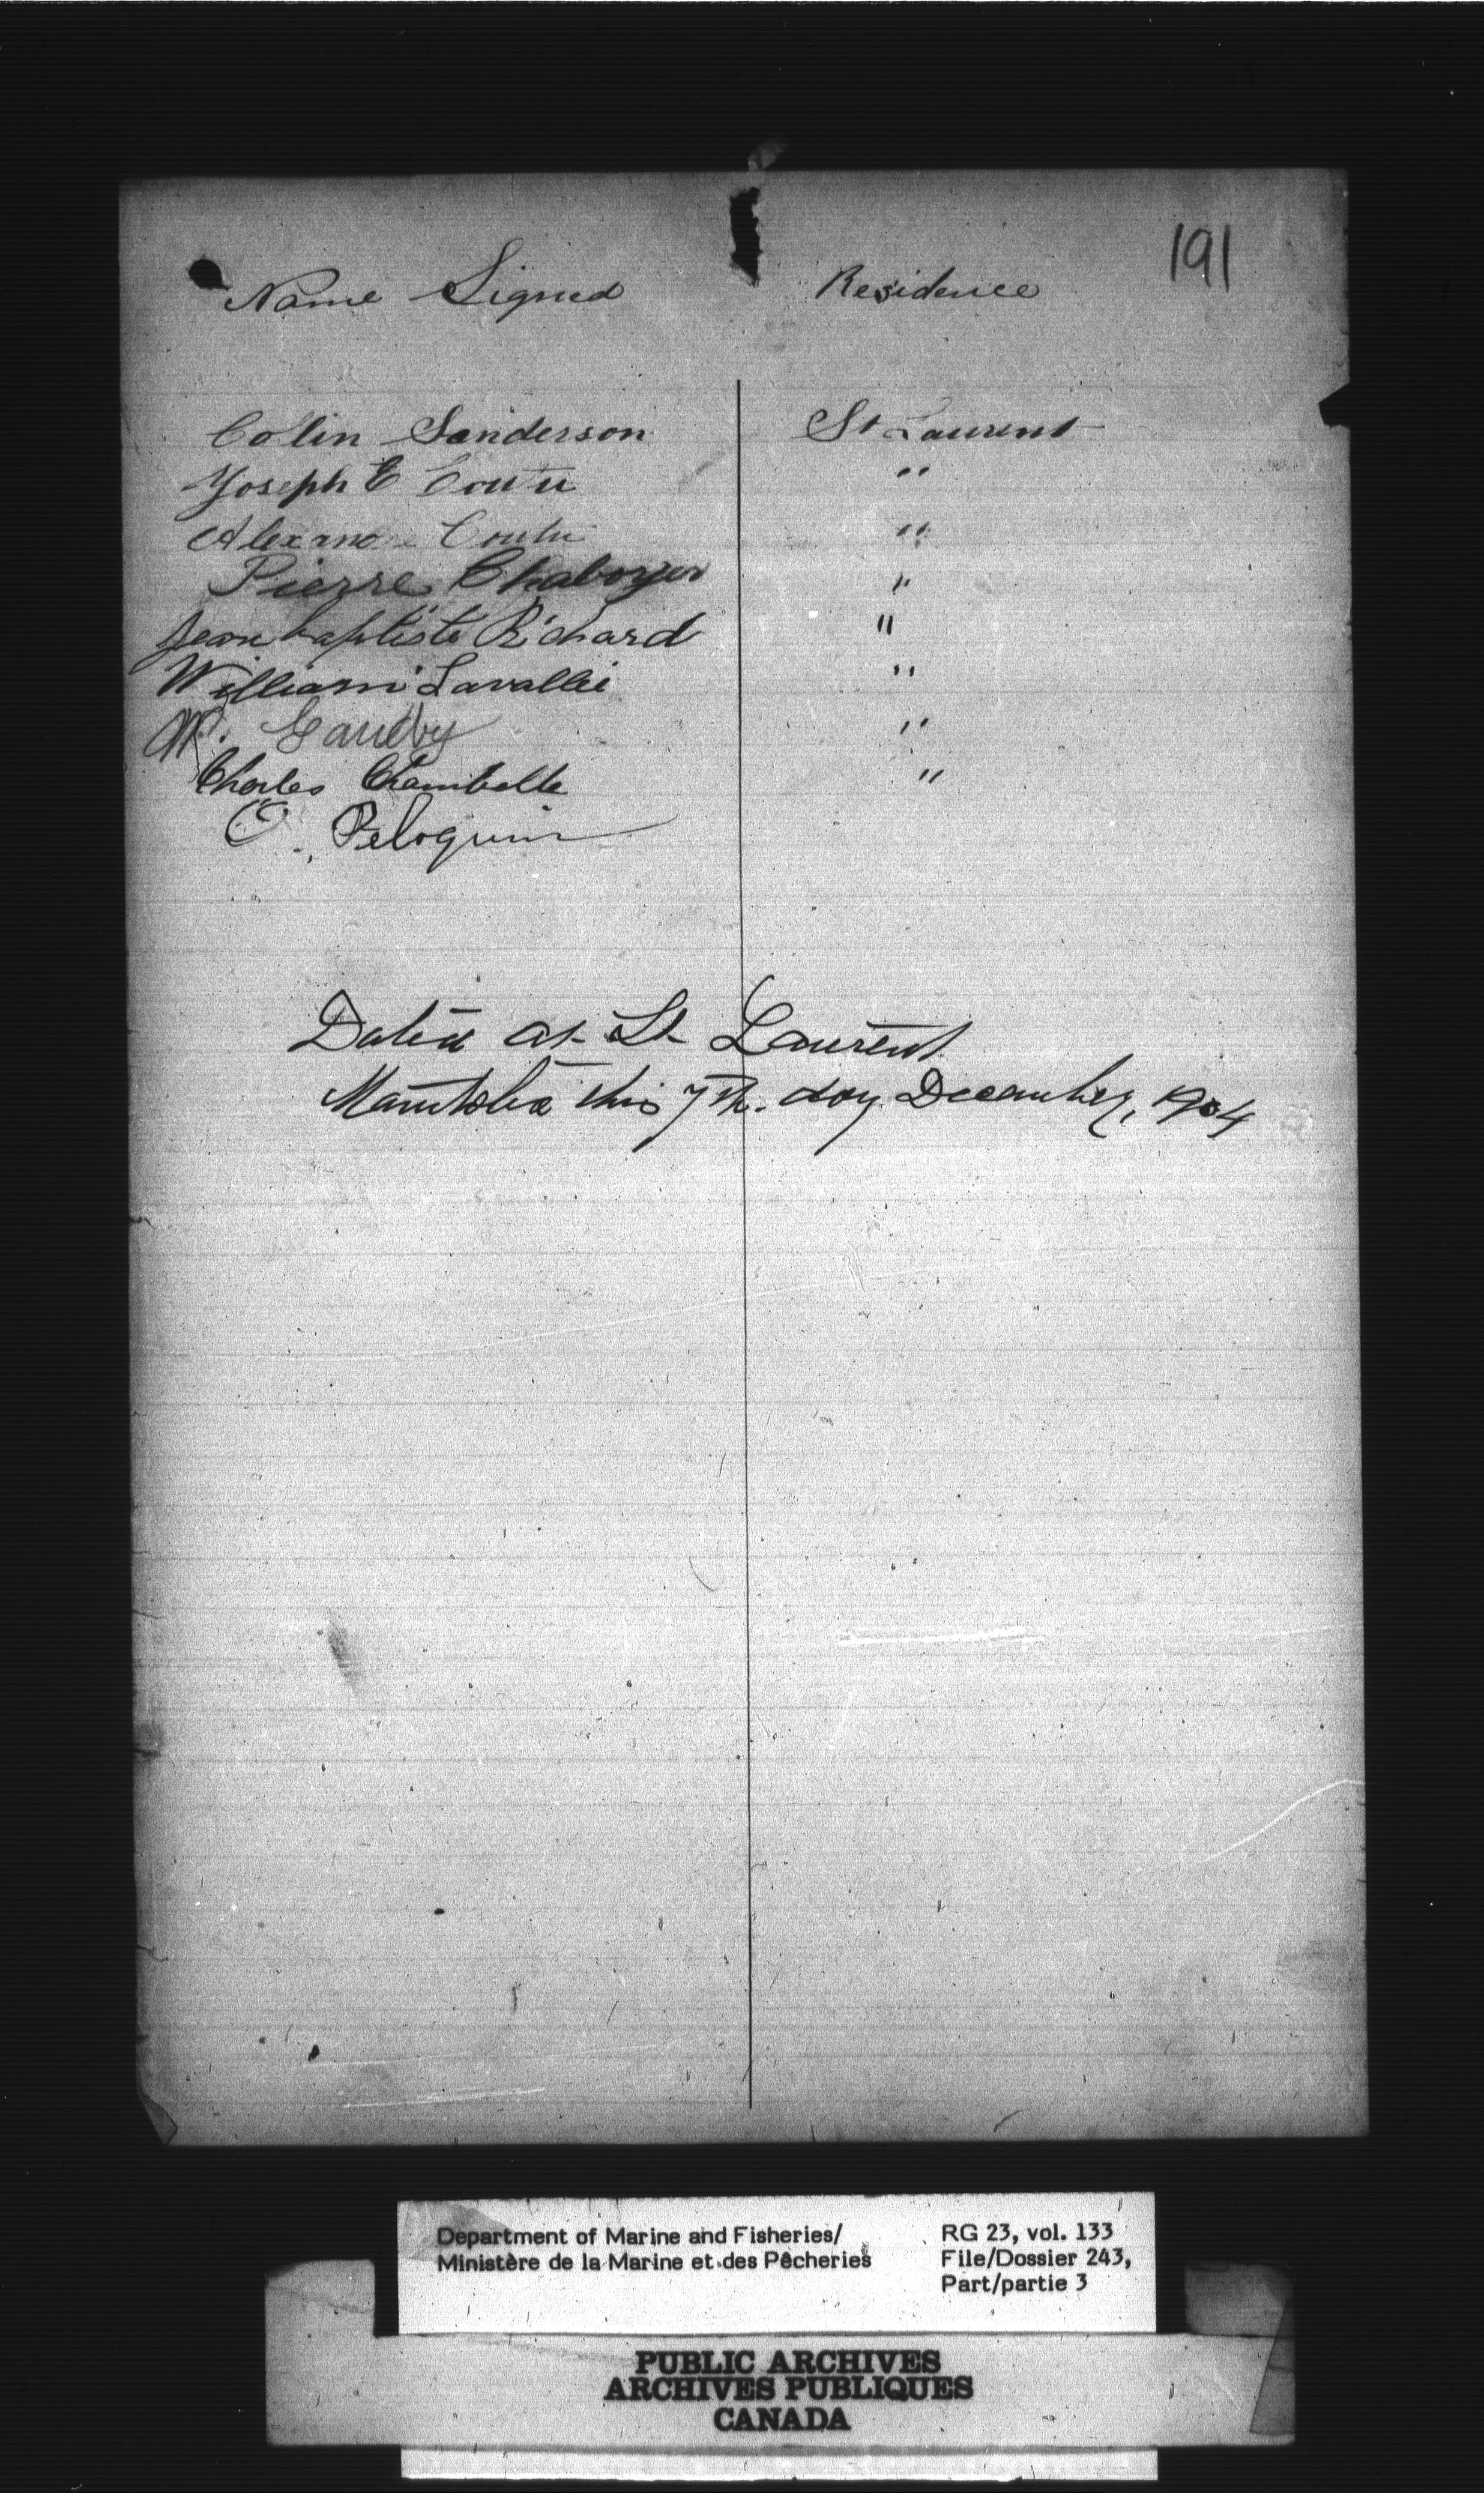 191
Name Signed Residence
Colin Sanderson St Laurent
Joseph E Coutu "
Alexand Coutu "
Pierre Chaboyer "
Jean baptiste Richard "
William Lavallée "
M. Gaudry "
Charles Chambelle "
O. Peloquin
Dated at St Laurent
Manitoba this 7th. day December, 1904
Department of Marine and Fisheries/ RG 23, vol. 133
Ministère de la Marine et des Pêcheries File/Dossier 243,
Part/partie 3
PUBLIC ARCHIVES
ARCHIVES PUBLIQUES
CANADA